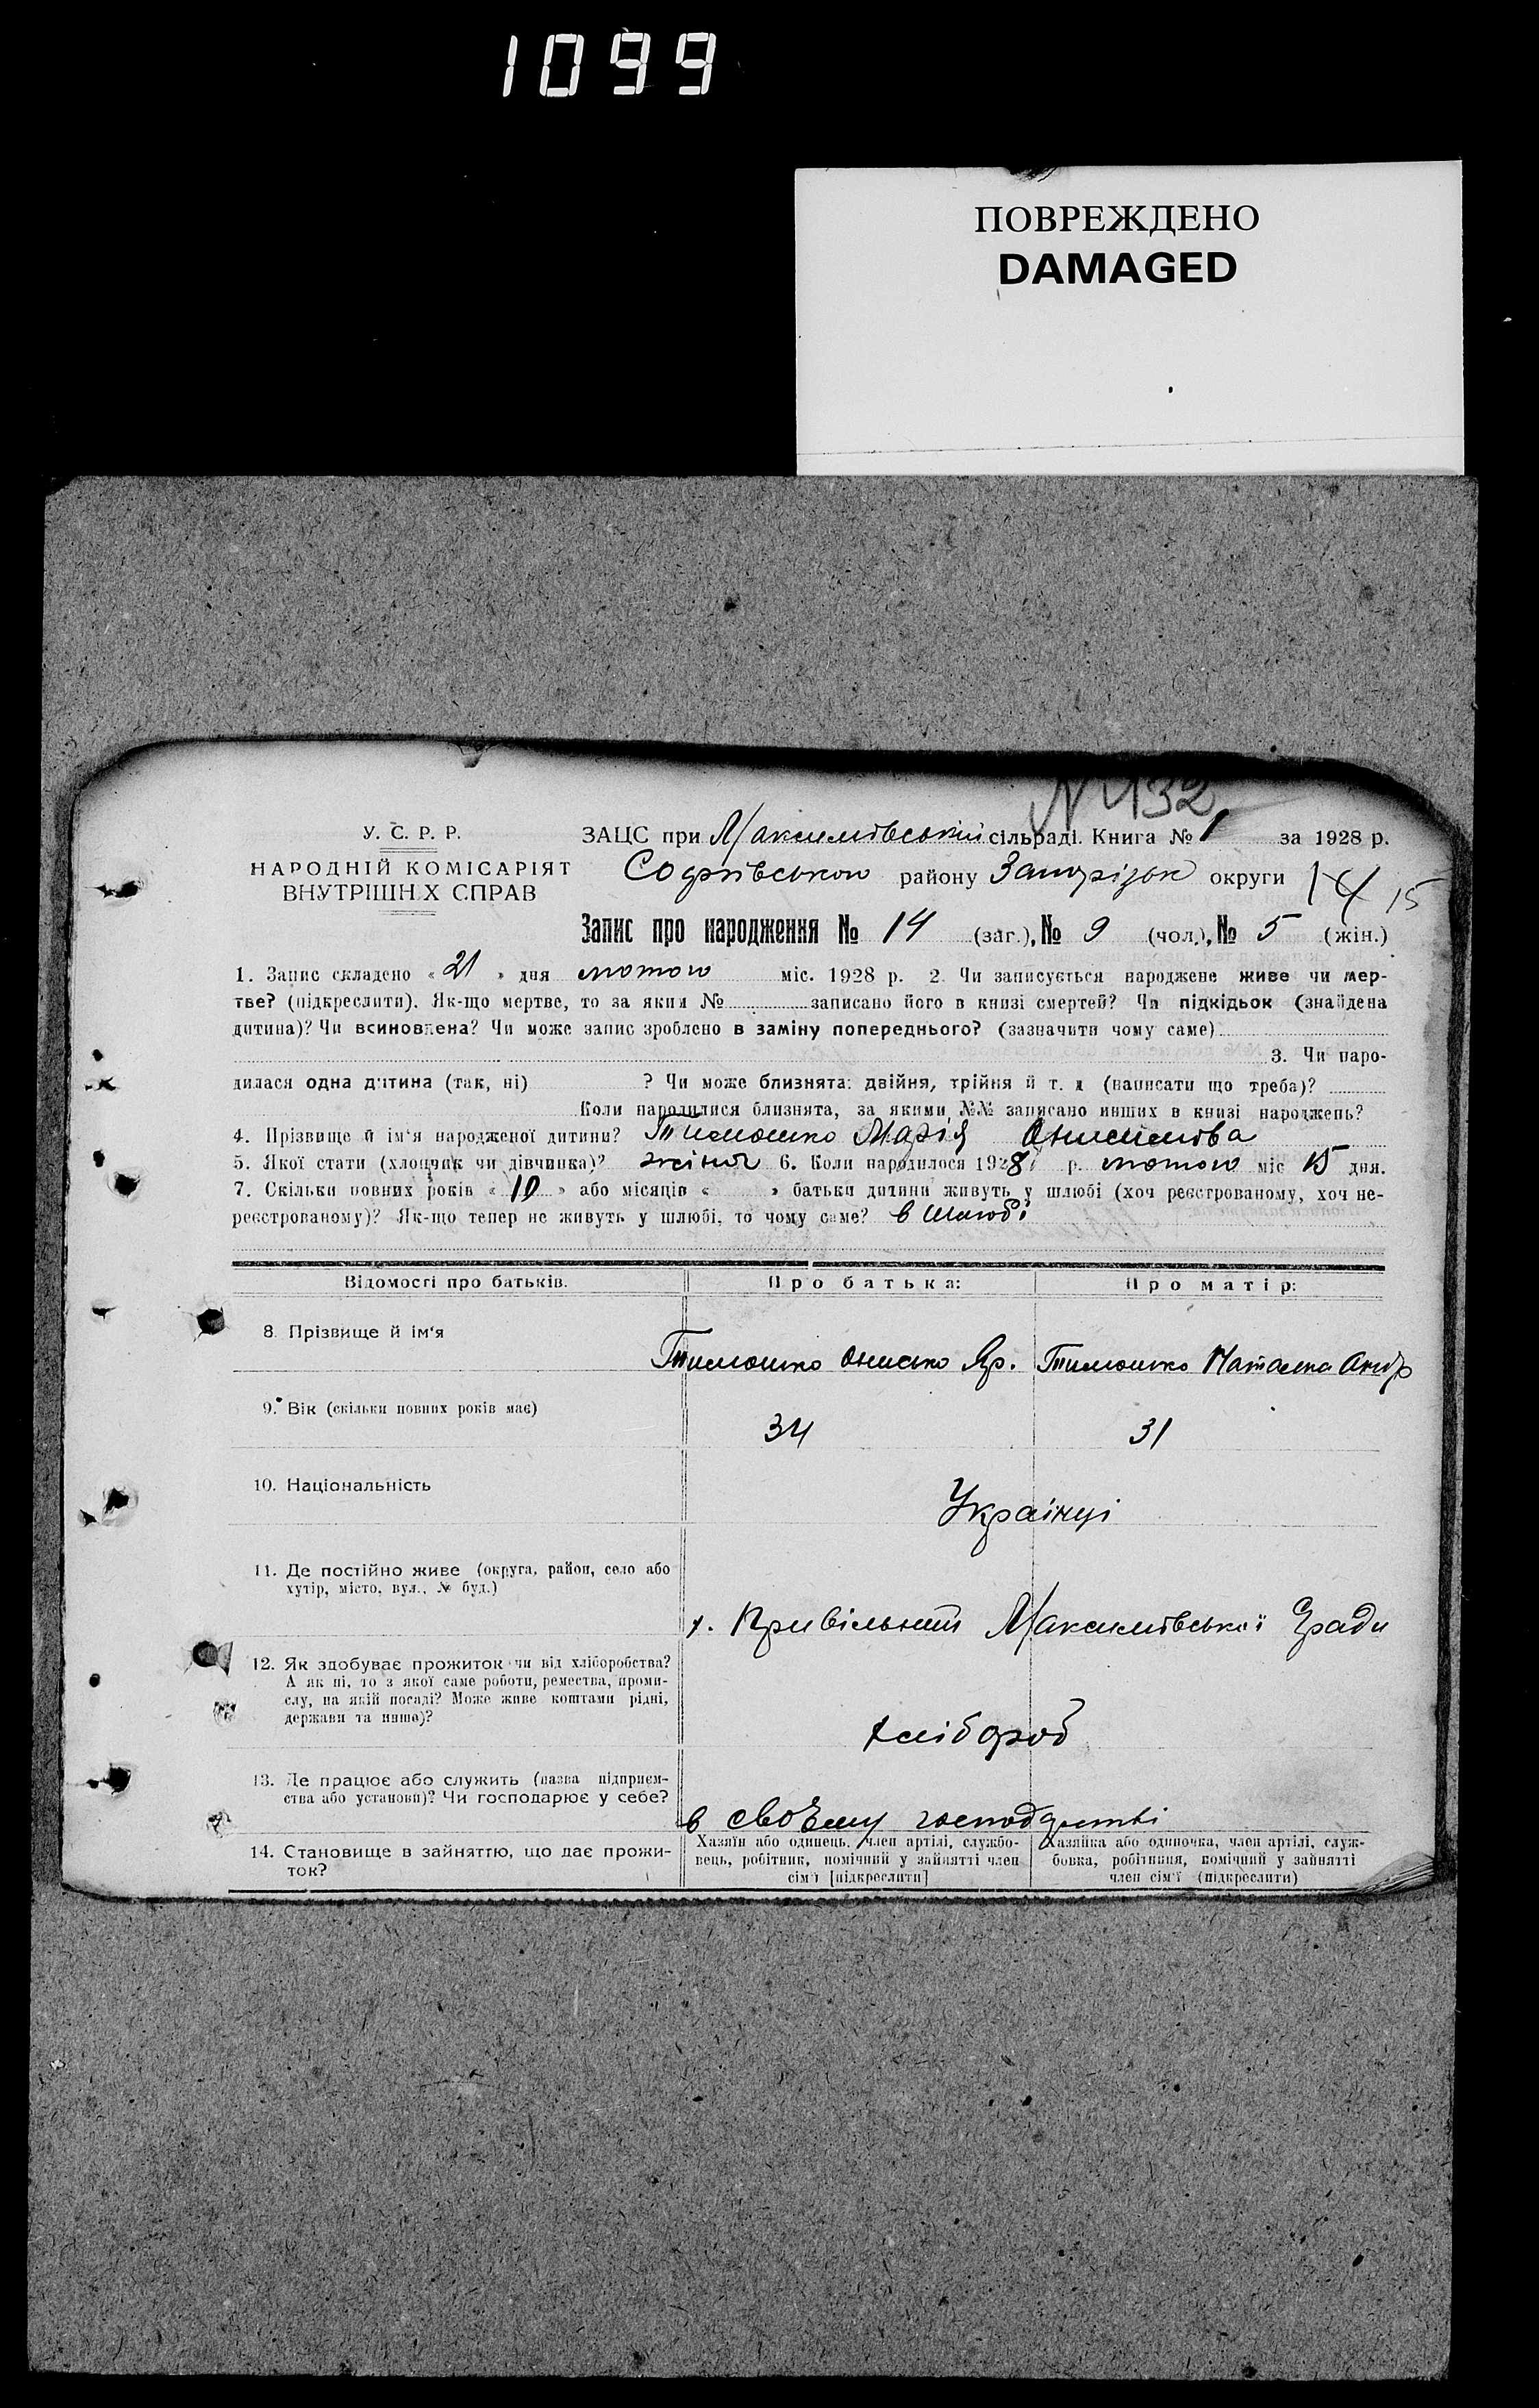 1099
ПОВРЕЖДЕНО
DAMAGED
N 132
У. С. Р. Р.
НАРОДНІЙ КОМІСАРІЯТ
ВНУТРІШНІХ СПРАВ
ЗАЦС при Максимівській сільраді. Книга № 1 за 1928 р.
Софіївського району Запорізьк округи 14 15
Запис про народження № 14 (заг.), № 9 (чол.), № 5 (жін.)
1. Запис складено « 21 » дня лютого міс. 1928 р. 2. Чи записується народжене живе чи мер-
тве? (підкреслити). Як-що мертве, то за яким № записано його в книзі смертей? Чи підкідьок (знайдена
дитина)? Чи всиновлена? Чи може запис зроблено в заміну попереднього? (зазначити чому саме)
3. Чи наро-
дилася одна дитина (так, ні) ? Чи може близнята: двійня, трійня й т. д (написати що треба)?
Коли народилися близнята, за якими №№ записано инших в книзі народжень?
4. Прізвище й ім'я народженої дитини? Тимошко Марія Онисимова
5. Якої стати (хлопчик чи дівчинка)? жіноч 6. Коли народилося 1928 р. лютого міс 15 дня.
7. Скільки повних років « 10 » або місяців « » батьки дитини живуть у шлюбі (хоч реєстрованому, хоч не-
реєстрованому)? Як-що тепер не живуть у шлюбі, то чому саме? в шлюбі
Відомості про батьків. Про батька: Про матір:
8. Прізвище й ім'я Тимошко Онисько Яр. Тимошко Наталка Андр
9. Вік (скільки повних років має) 34 31
10. Національність Українці
11. Де постійно живе (округа, район, село або
хутір, місто, вул., № буд.)
х. Привільний Максимівської С/ради
12. Як здобуває прожиток чи від хліборобства?
А як ні, то з якої саме роботи, ремества, проми-
слу, на якій посаді? Може живе коштами рідні,
держави та инше)?
хлібороб
13. Де працює або служить (назва підприєм-
ства або установи)? Чи господарює у себе?
в своєму господарстві
14. Становище в зайняттю, що дає прожи-
ток?
Хазяїн або одинець, член артілі, службо-
вець, робітник, помічний у зайнятті член
сім'ї [підкреслити]
Хазяйка або одиночка, член артілі, служ-
бовка, робітниця, помічний у зайнятті
член сім'ї (підкреслити)